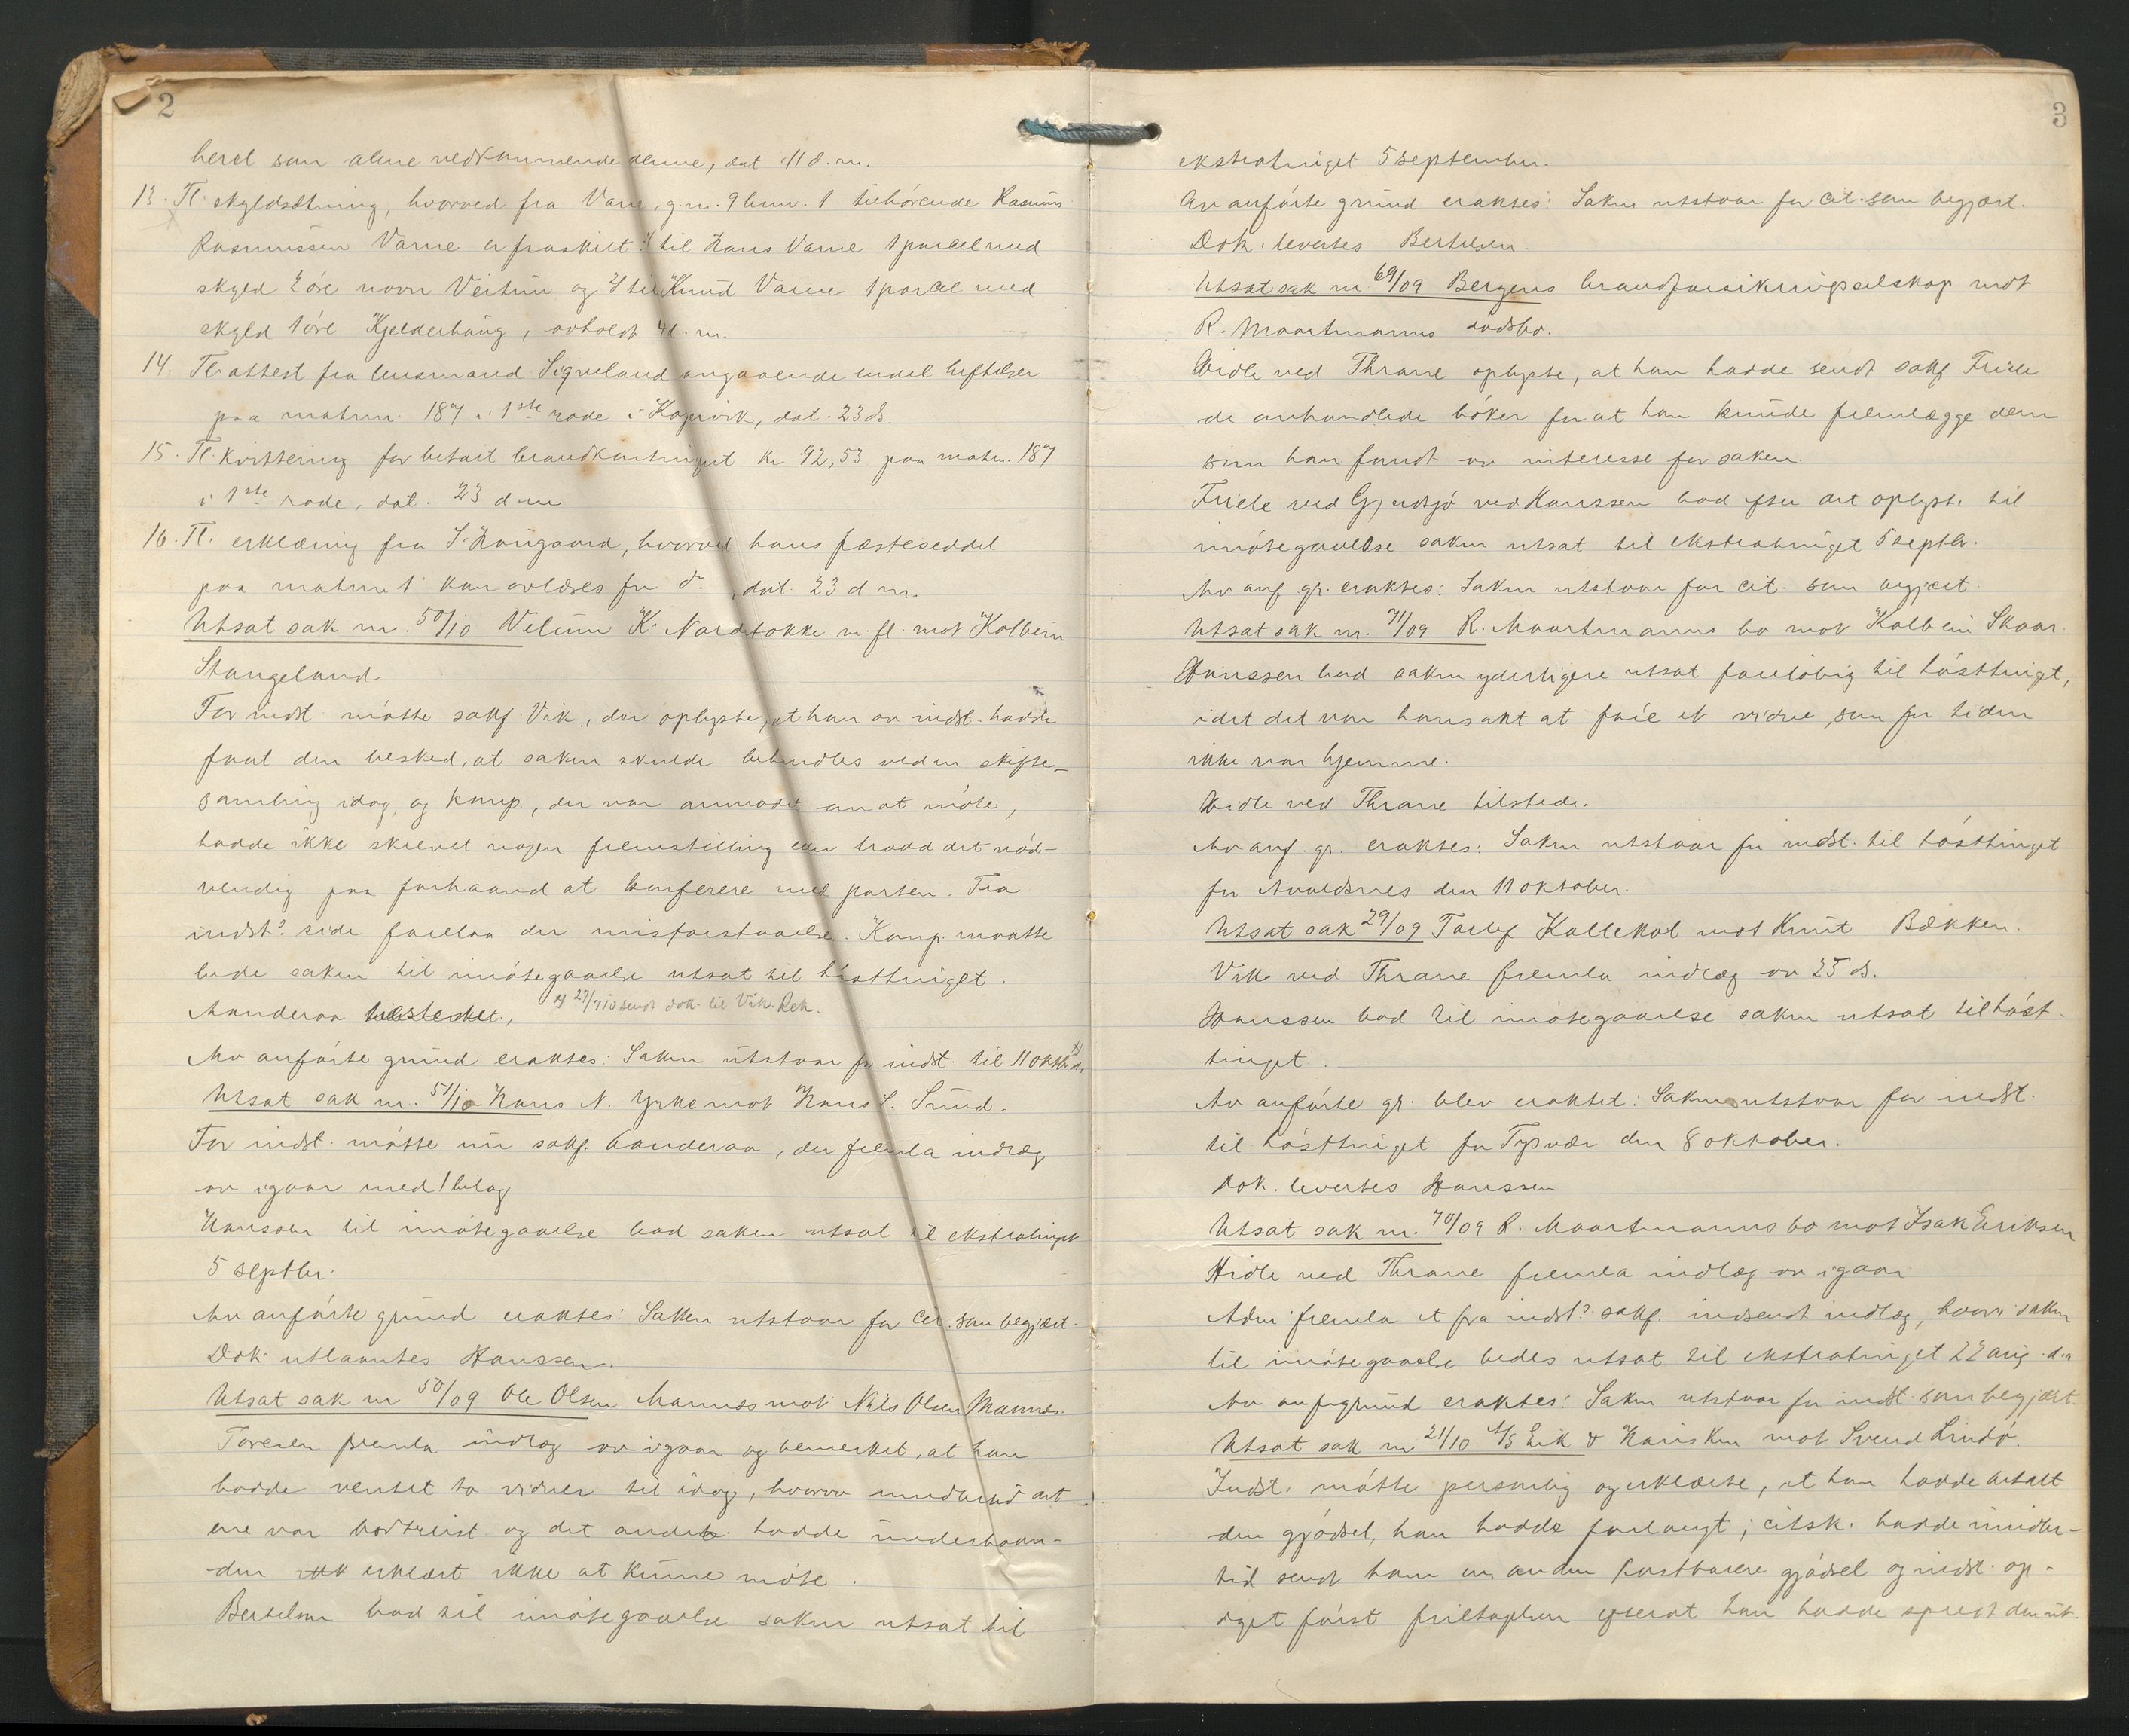 2
berel som alene vedkommende denne, dat 11 d. m.
13. Tl. skyldsætning, hvorved fra Varne, g.nr. 9 bnr. 1 tilhörende Rasmus
Rasmussen Varne er fraskilt: 1) til Hans Varne 1 parcel med
skyld 2 öre navn Veitun og 2) til Knud Varne 1 parcel med
skyld 1 öre Kjelderhaug, avholdt 4 d. m.
14. Tl. attest fra lensmand Sigveland angaaende endel heftelser
paa matrnr. 187 i 1ste rode i Kopervik, dat. 23 ds.
15. Tl. kvittering for betalt brandkontingent kr 92,53 paa matr. 187
i 1ste rode, dat. 23 d m
16. Tl. erklæring fra S. Haugaard, hvorved hans fæsteseddel
paa matrnr 1 kan avlæses for do., dat. 23 d m.
Utsat sak nr. 50/10 Velum K. Nordstokke m. fl. mot Kolbein
Stangeland.
For indst. mötte sakf. Vik, der oplyste, at han av indst. hadde
faat den besked, at saken skulde behandles ved en skifte-
samling idag, og komp., der var anmodet om at möte,
hadde ikke skrevet nogen fremstilling eller trodd det nöd-
vendig paa forhaand at konferere med parten. Fra
indsts. side forelaa der misforstaaelse. Komp. maatte
bede saken til imötegaaelse utsat til hösttinget.
Aanderaa tilstedet., x) 27/7 10 sendt dok. til Vik. Rek.
Av anförte grund eraktes: Saken utstaar for indst. til 11 oktbr. x)
Utsat sak nr. 51/10 Hans N. Yrke mot Hans L. Sund.
For indst. mötte nu sakf. Aanderaa, der fremla indlæg
av igaar med 1 bilag
Hanssen til imötegaaelse bad saken utsat til ekstratinget
5 septbr.
Av anförte grund eraktes: Saken utstaar for cit. som begjært.
Dok. utlaantes Hanssen.
Utsat sak nr 50/09 Ole Olsen Mannes mot Nils Olsen Mannes.
Toresen fremla indlæg av igaar og bemerket, at han
hadde ventet to vidner til idag, hvorav imidlertid det
ene var bortreist og det andet hadde underhaan-
den erklært ikke at kunne möte.
Bertelsen bad til imötegaaelse saken utsat til
3
ekstratinget 5 september.
Av anförte grund eraktes: Saken utstaar for cit. som begjært.
Dok. levertes Bertelsen.
Utsat sak nr 69/09 Bergens brandforsikringsselskap mot
R. Maartmanns dödsbo.
Hidle ved Thrane oplyste, at han hadde sendt sakf Friele
de omhandlede böker for at han kunde fremlægge dem
som han fandt av interesse for saken.
Friele ved Gjertsjö ved Hanssen bad efter det oplyste til
imötegaaelse saken utsat til ekstratinget 5 septbr.
Av anf gr. eraktes: Saken utstaar for cit. som begjært.
Utsat sak nr. 71/09 R. Maartmanns bo mot Kolbein Skaar.
Hanssen bad saken yderligere utsat foreløbig til hösttinget,
idet det var hans akt at före et vidne, som for tiden
ikke var hjemme.
Hidle ved Thrane tilstede.
Av anf. gr. eraktes: Saken utstaar for indst. til hösttinget
for Avaldsnes den 11 oktober.
Utsat sak 29/09 Torlef Kallekod mot Knut Bækken.
Vik ved Thrane fremla indlæg av 25 ds.
Hanssen bad til imötegaaelse saken utsat til höst-
tinget.
Av anförte gr. blev eraktet: Saken utstaar for indst.
til hösttinget for Tysvær den 8 oktober.
Dok. levertes Hanssen
Utsat sak nr. 70/09 R. Maartmanns bo mot Isak Eriksen
Hidle ved Thrane fremla indlæg av igaar
Adm. fremla et fra indsts. sakf. indsendt indlæg, hvori saken
til imötegaaelse bedes utsat til ekstratinget 22 aug. d.a
Av anf. grund eraktes: Saken utstaar for indst. som begjært.
Utsat sak nr 21/10 A/S Eik & Hausken mot Svend Lindö.
Indst. mötte personlig og erklærte, at han hadde betalt
den gjödsel, han hadde forlangt; citsk. hadde imidler-
tid sendt ham en anden kostbarere gjödsel og indst. op-
dget först feiltagelsen efterat han hadde spredt den ut.